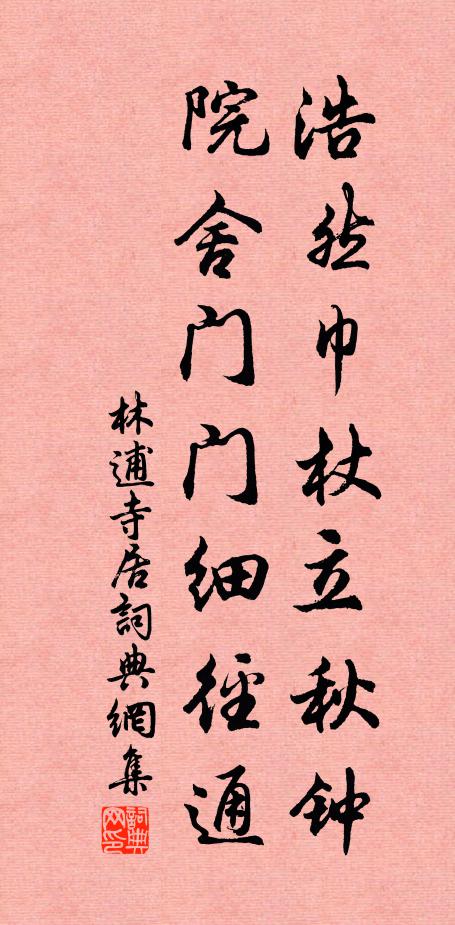 浩然巾杖立秋钟
院舍门门细径通
林逋寺居詞典網集
詞典网印